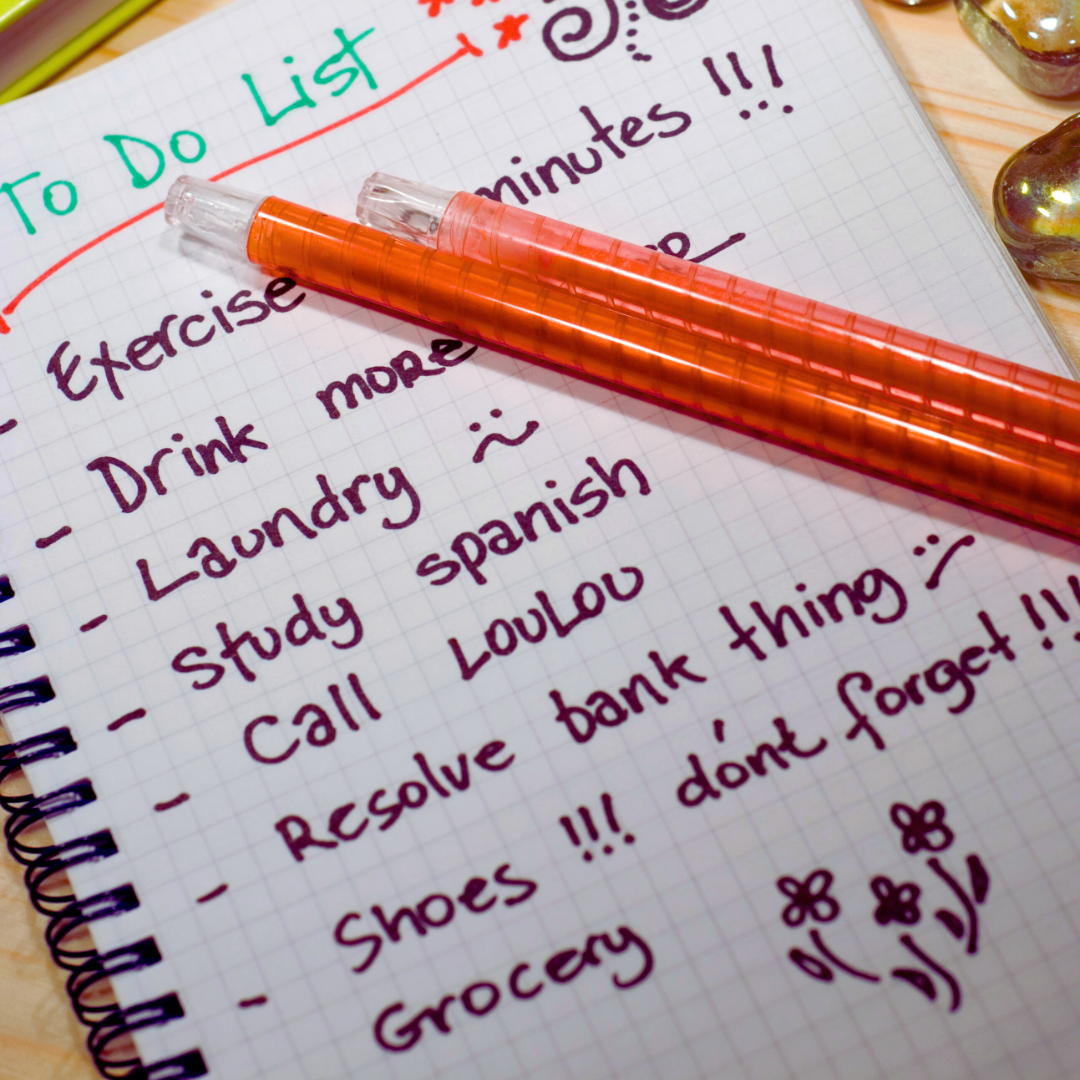 To Do List
- Exercise minutes !!!
- Drink more
- Laundry
- Study spanish
- Call LouLou
- Resolve bank thing :(
- Shoes !!! dón't forget !!!
Grocery